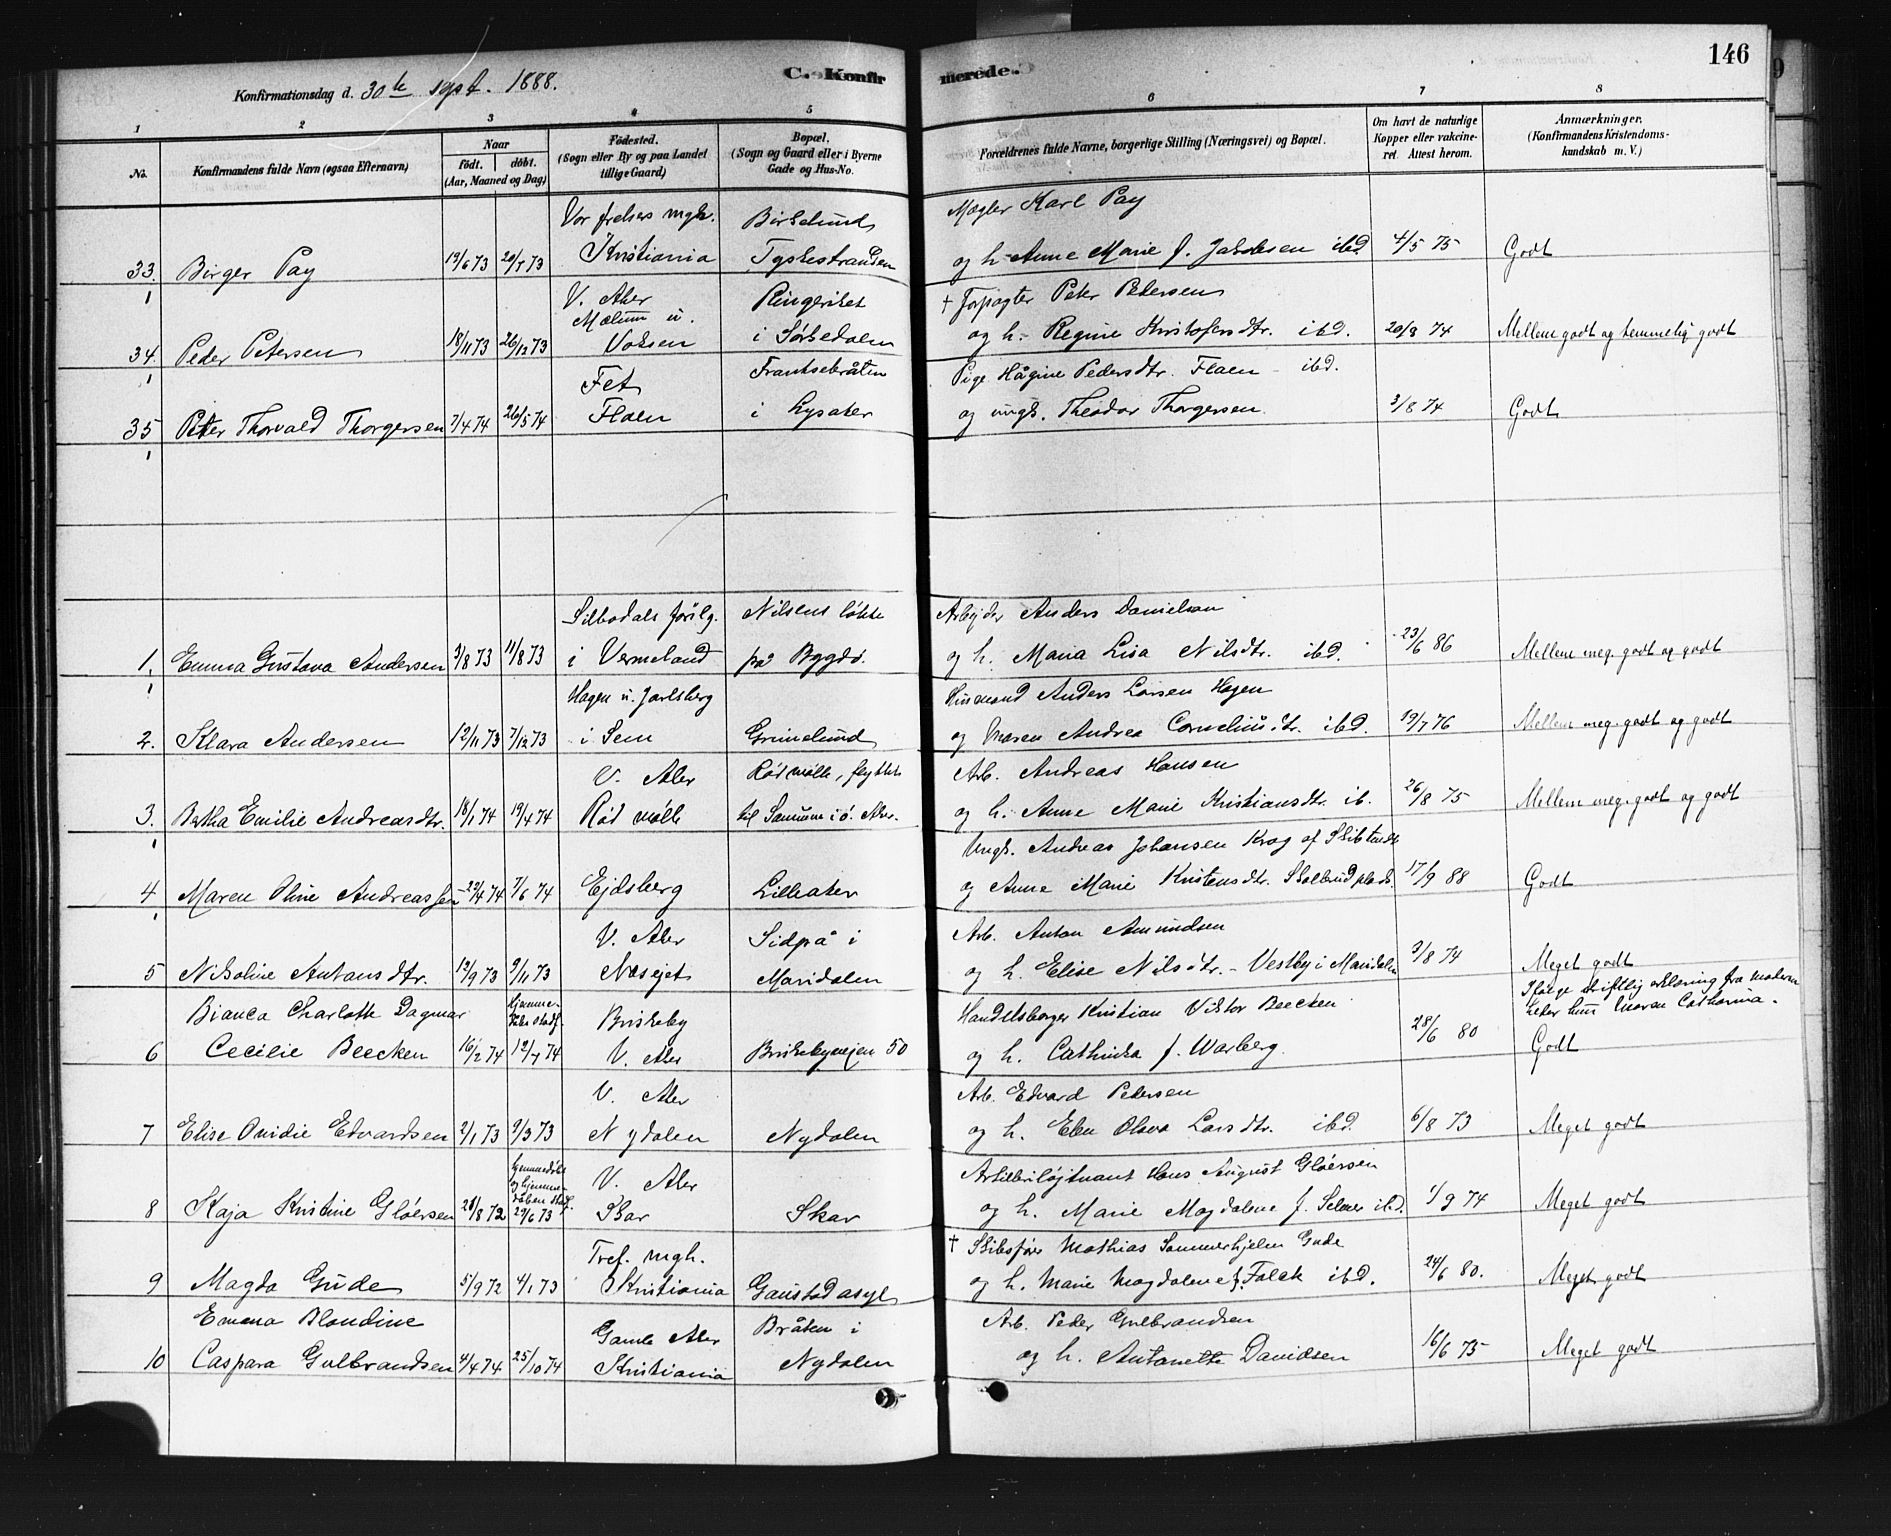 146
C. Konfirmerede.
Konfirmationsdag d. 30te sept. 1888.
1 2 3 4 5 6 7 8
No. Konfirmandens fulde Navn (ogsaa Efternavn)
Naar født. døbt. (Aar, Maaned og Dag)
Fødested. (Sogn eller By og paa Landet tillige Gaard)
Bopæl. (Sogn og Gaard eller i Byerne Gade og Hus-No.
Forældrenes fulde Navne, borgerlige Stilling (Næringsvei) og Bopæl.
Om havt de naturlige Kopper eller vakcineret. Attest herom.
Anmærkninger. (Konfirmandens Kristendomskundskab m. V.)
Vor frelsers mgh. Birkelund Mægler Karl Pay
33. Birger Pay 19/6 73 20/7 73 Kristiania Tyskestranden og h. Anne Marie f. Jakobsen ibd 4/5 75 Godt
V. Aker Ringeriket † Forpagter Peter Petersen
Mælum u.
34. Peder Petersen 18/11 73 26/12 73 Voksen i Sørkedalen og h. Regine Kristofersdtr. ibd. 20/8 74 Mellem godt og temmelig godt
Fet Frantsebråten Pige Hågine Pedersdtr. Flaen ibd.
35 Peter Thorvald Thorgersen 7/4 74 26/5 74 Flaen i Lysaker og ungk. Theodor Thorgersen. 3/8 74 Godt
Silbodals forslg. Nilsens løkke Arbejder Anders Danielson
1. Emma Gustava Andersen 3/8 73 11/8 73 i Vermeland på Bygdø. og h. Maria Lisa Nilsdtr. ibd. 23/6 86 Mellem meg. godt og godt
Hagen u. Jarlsberg Husmand Anders Larsen Hagen
2. Klara Andersen 12/11 73 7/12 73 i Sem Grimelund og Maren Andrea Corneliusdtr. ibd. 19/7 76 Mellem meg. godt og godt
V. Aker Rødmølle, flyttet Arb. Andreas Hansen
3. Bertha Emilie Andreasdtr. 18/1 74 19/4 74 Rød mølle til i ø. Aker. og h. Anne Marie Kristiansdtr. ib. 26/8 75 Mellem meg. godt og godt
Ungk. Andreas Johansen Krog af
4 Maren Oline Andreassen 29/4 74 7/6 74 Ejdsberg Lilleaker og Anne Marie Kristensdtr. 17/9 88 Godt
V. Aker Sidpå i Arb. Anton Amundsen
5 Nikoline Antonsdtr. 13/9 73 9/11 73 Næsejet Maridalen og h. Elise Nilsdtr. - Vestby i Maridalen 3/8 74 Meget godt
Ifølge skriftlig erklæring fra moderen
Bianca Charlotte Dagmar hjemmedøbt Briskeby Handelsborger Kristian Viktor Beecken heder hun Maren Catharina.
6 Cecilie Beecken 16/2 74 12/7 74 V. Aker Briskebyvejen 50 og h. Cathinka f. Warberg. 28/6 80 Godt
V. Aker Arb. Edvard Petersen
7 Elise Ovidie Edvardsen 2/1 73 9/3 73 Nydalen Nydalen og h. Ellen Olava Larsdtr. ibd. 6/8 73 Meget godt
hjemmedøbt V. Aker Artilleriløjtnant Hans August Gløersen
8 Kaja Kristine Gløersen 28/8 72 29/6 73 Skar Skar og h. Marie Magdalene f. Selmer ibd. 1/9 74 Meget godt
Tref. mgh. † Skibsfører Mathias Sommerhjelm Gude
9 Magda Gude 5/9 72 4/1 73 Kristiania Gaustad asyl og h. Marie Magdalene f. Falck ibd. 24/6 80. Meget godt
Emma Blondine Gamle Aker Bråten i Arb. Peder Gulbrandsen
10 Caspara Gulbrandsen 4/4 74 25/10 74 Kristiania Nydalen og h. Antonette Davidsen 16/6 75 Meget godt